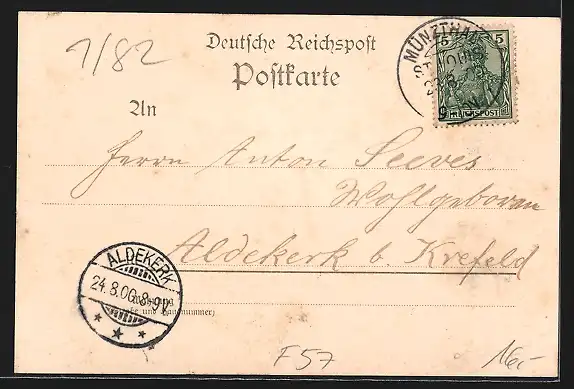 1/82
Deutsche Reichspost
Postkarte
An
MÜNZTHAL
5 5
REICHSPOST
Herrn Anton Seeves
Wohlgeboren
Aldekerk b. Krefeld
ALDEKERK
24.8.00. 8-9V
Wohnung
und Hausnummer)
F57
16,-